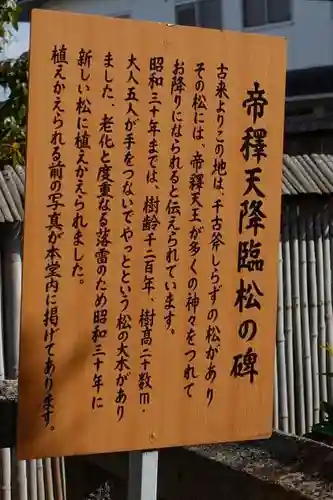 帝釋天降臨松の碑
古来よりこの地は、千古斧しらずの松があり
その松には、帝釋天王が多くの神々をつれて
お降りになられると伝えられています。
昭和三十年までは、樹齢千二百年、樹高二十数m.
大人五人が手をつないでやっとという松の大木があり
ました、老化と度重なる落雷のため昭和三十年に
新しい松に植えかえられました。
植えかえられる前の写真が本堂内に掲げてあります。